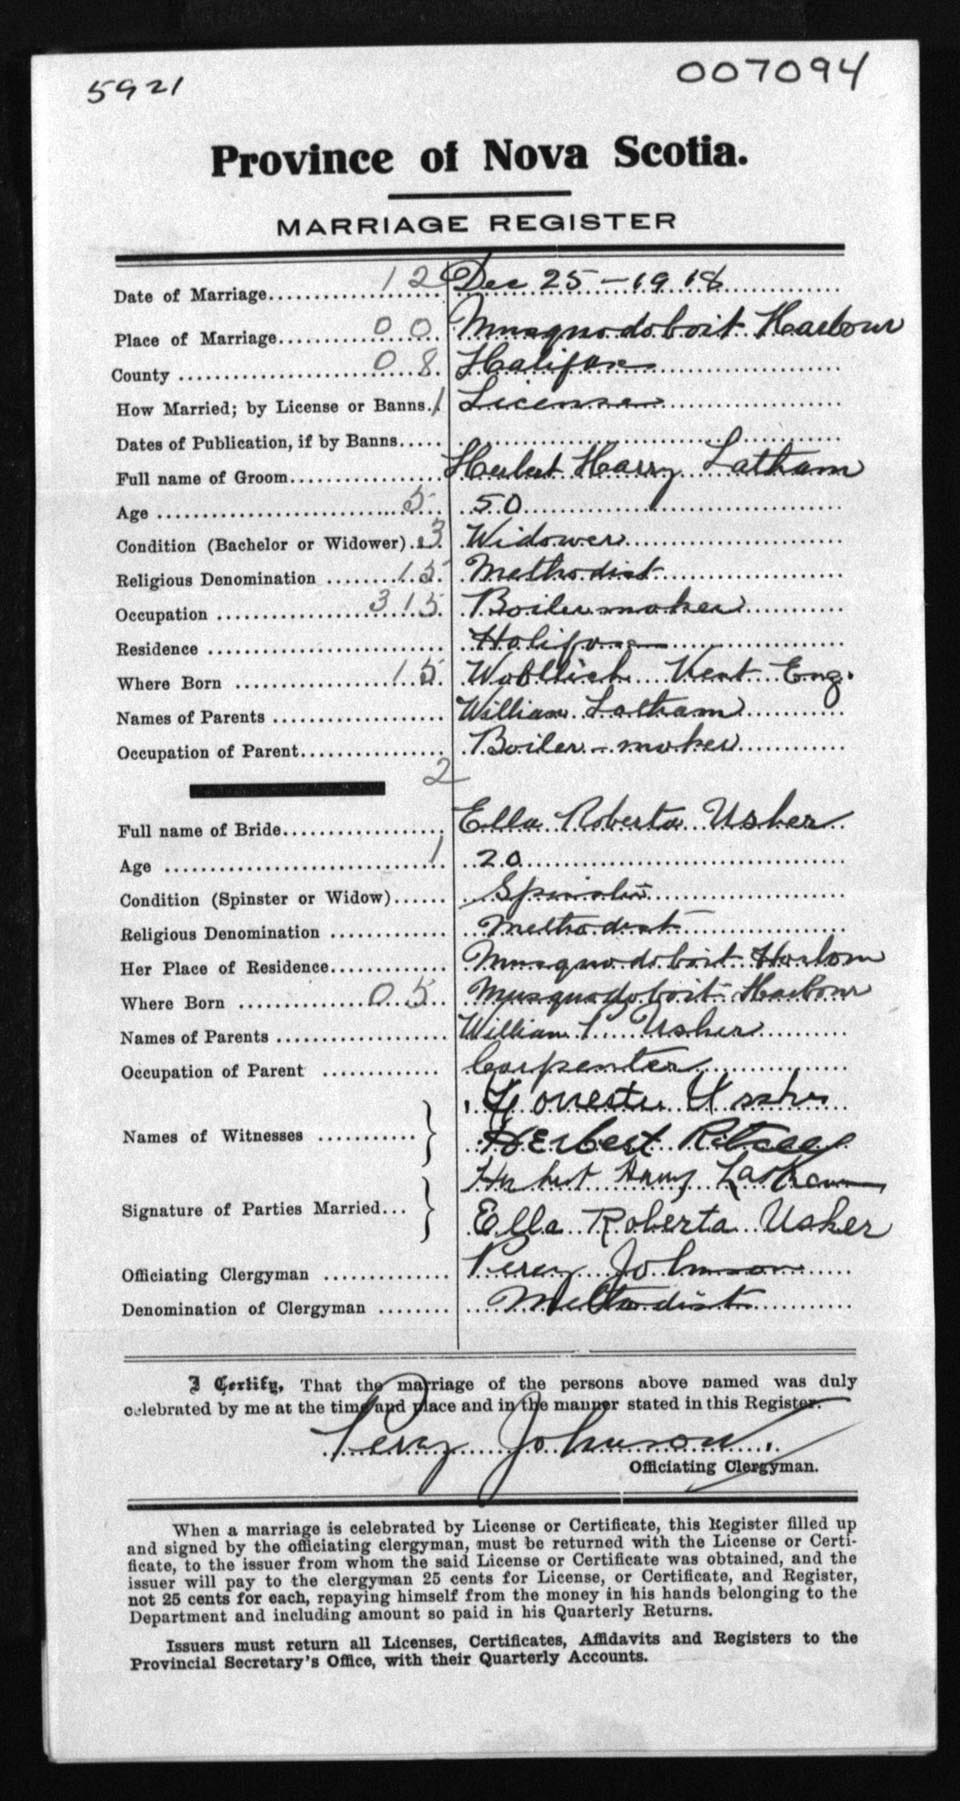 5921
007094
Province of Nova Scotia.
MARRIAGE REGISTER
Date of Marriage 12 Dec 25 - 1918
Place of Marriage 00 Musquodoboit Harbour
County 08 Halifax
How Married; by License or Banns. 1 License
Dates of Publication, if by Banns
Full name of Groom Herbert Harry Latham
Age 5 50
Condition (Bachelor or Widower) 3 Widower
Religious Denomination 15 Methodist
Occupation 315 Boilermaker
Residence Halifax
Where Born 15 Kent Eng.
Names of Parents William Latham
Occupation of Parent Boiler-maker
2
Full name of Bride Ella Roberta Usher
Age 1 20
Condition (Spinster or Widow) Spinster
Religious Denomination Methodist
Her Place of Residence Musquodoboit Harbour
Where Born 05 Musquodoboit Harbour
Names of Parents William Usher
Occupation of Parent Carpenter
Names of Witnesses
Herbert
Signature of Parties Married Herbert Harry Latham
Ella Roberta Usher
Officiating Clergyman Percy Johnson
Denomination of Clergyman Methodist
I Certify, That the marriage of the persons above named was duly
celebrated by me at the time and place and in the manner stated in this Register.
Percy Johnson
Officiating Clergyman.
When a marriage is celebrated by License or Certificate, this Register filled up
and signed by the officiating clergyman, must be returned with the License or Certi-
ficate, to the issuer from whom the said License or Certificate was obtained, and the
issuer will pay to the clergyman 25 cents for License, or Certificate, and Register,
not 25 cents for each, repaying himself from the money in his hands belonging to the
Department and including amount so paid in his Quarterly Returns.
Issuers must return all Licenses, Certificates, Affidavits and Registers to the
Provincial Secretary's Office, with their Quarterly Accounts.